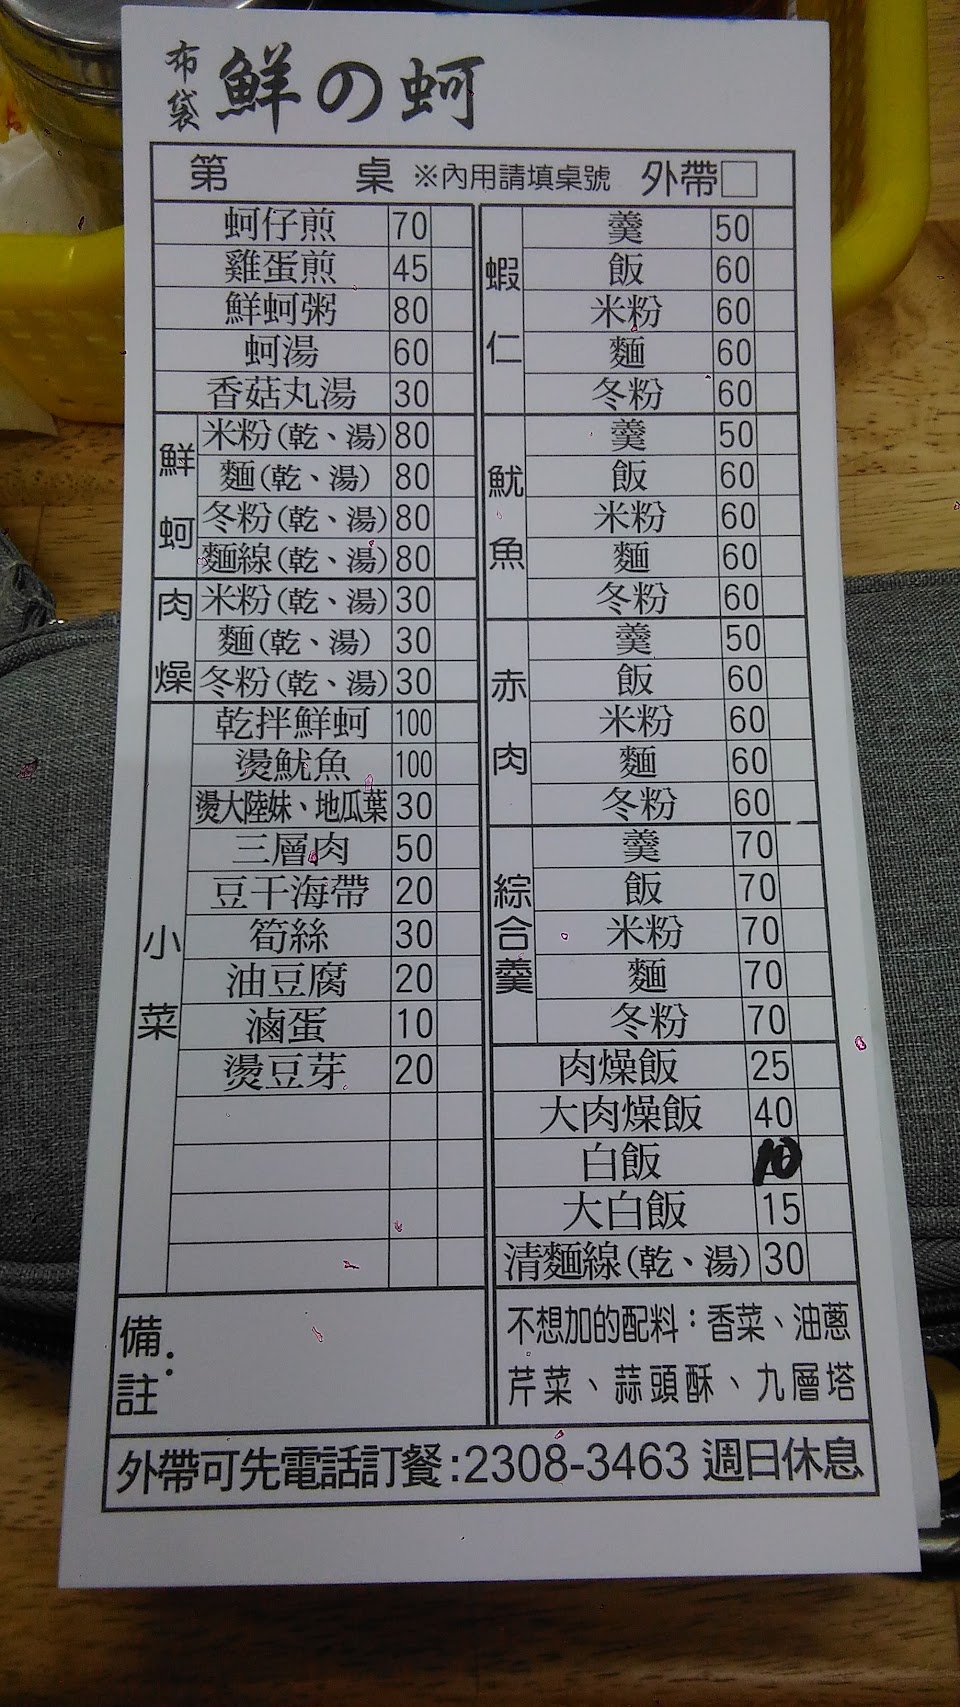 布袋 鮮の蚵
第 桌 ※內用請填桌號 外帶□
蚵仔煎 70
雞蛋煎 45
鮮蚵粥 80
蚵湯 60
香菇丸湯 30
鮮蚵
米粉(乾、湯) 80
麵(乾、湯) 80
冬粉(乾、湯) 80
麵線(乾、湯) 80
肉燥
米粉(乾、湯) 30
麵(乾、湯) 30
冬粉(乾、湯) 30
小菜
乾拌鮮蚵 100
燙魷魚 100
燙大陸妹、地瓜葉 30
三層肉 50
豆干海帶 20
筍絲 30
油豆腐 20
滷蛋 10
燙豆芽 20
備註:
蝦仁
羹 50
飯 60
米粉 60
麵 60
冬粉 60
魷魚
羹 50
飯 60
米粉 60
麵 60
冬粉 60
赤肉
羹 50
飯 60
米粉 60
麵 60
冬粉 60
綜合羹
羹 70
飯 70
米粉 70
麵 70
冬粉 70
肉燥飯 25
大肉燥飯 40
白飯 10
大白飯 15
清麵線(乾、湯) 30
不想加的配料：香菜、油蔥
芹菜、蒜頭酥、九層塔
外帶可先電話訂餐:2308-3463 週日休息